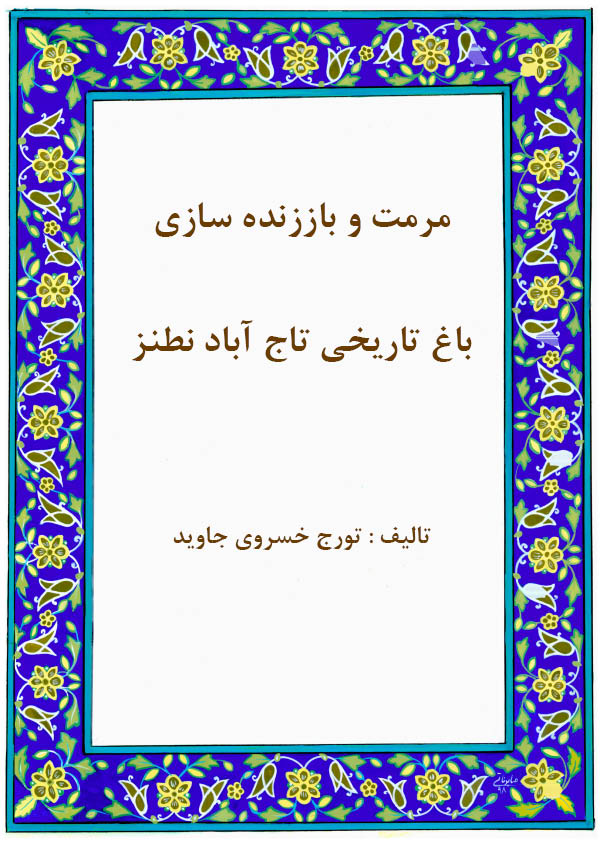 مرمت و باززنده سازی
باغ تاریخی تاج آباد نطنز
تالیف : تورج خسروی جاوید
۹۸